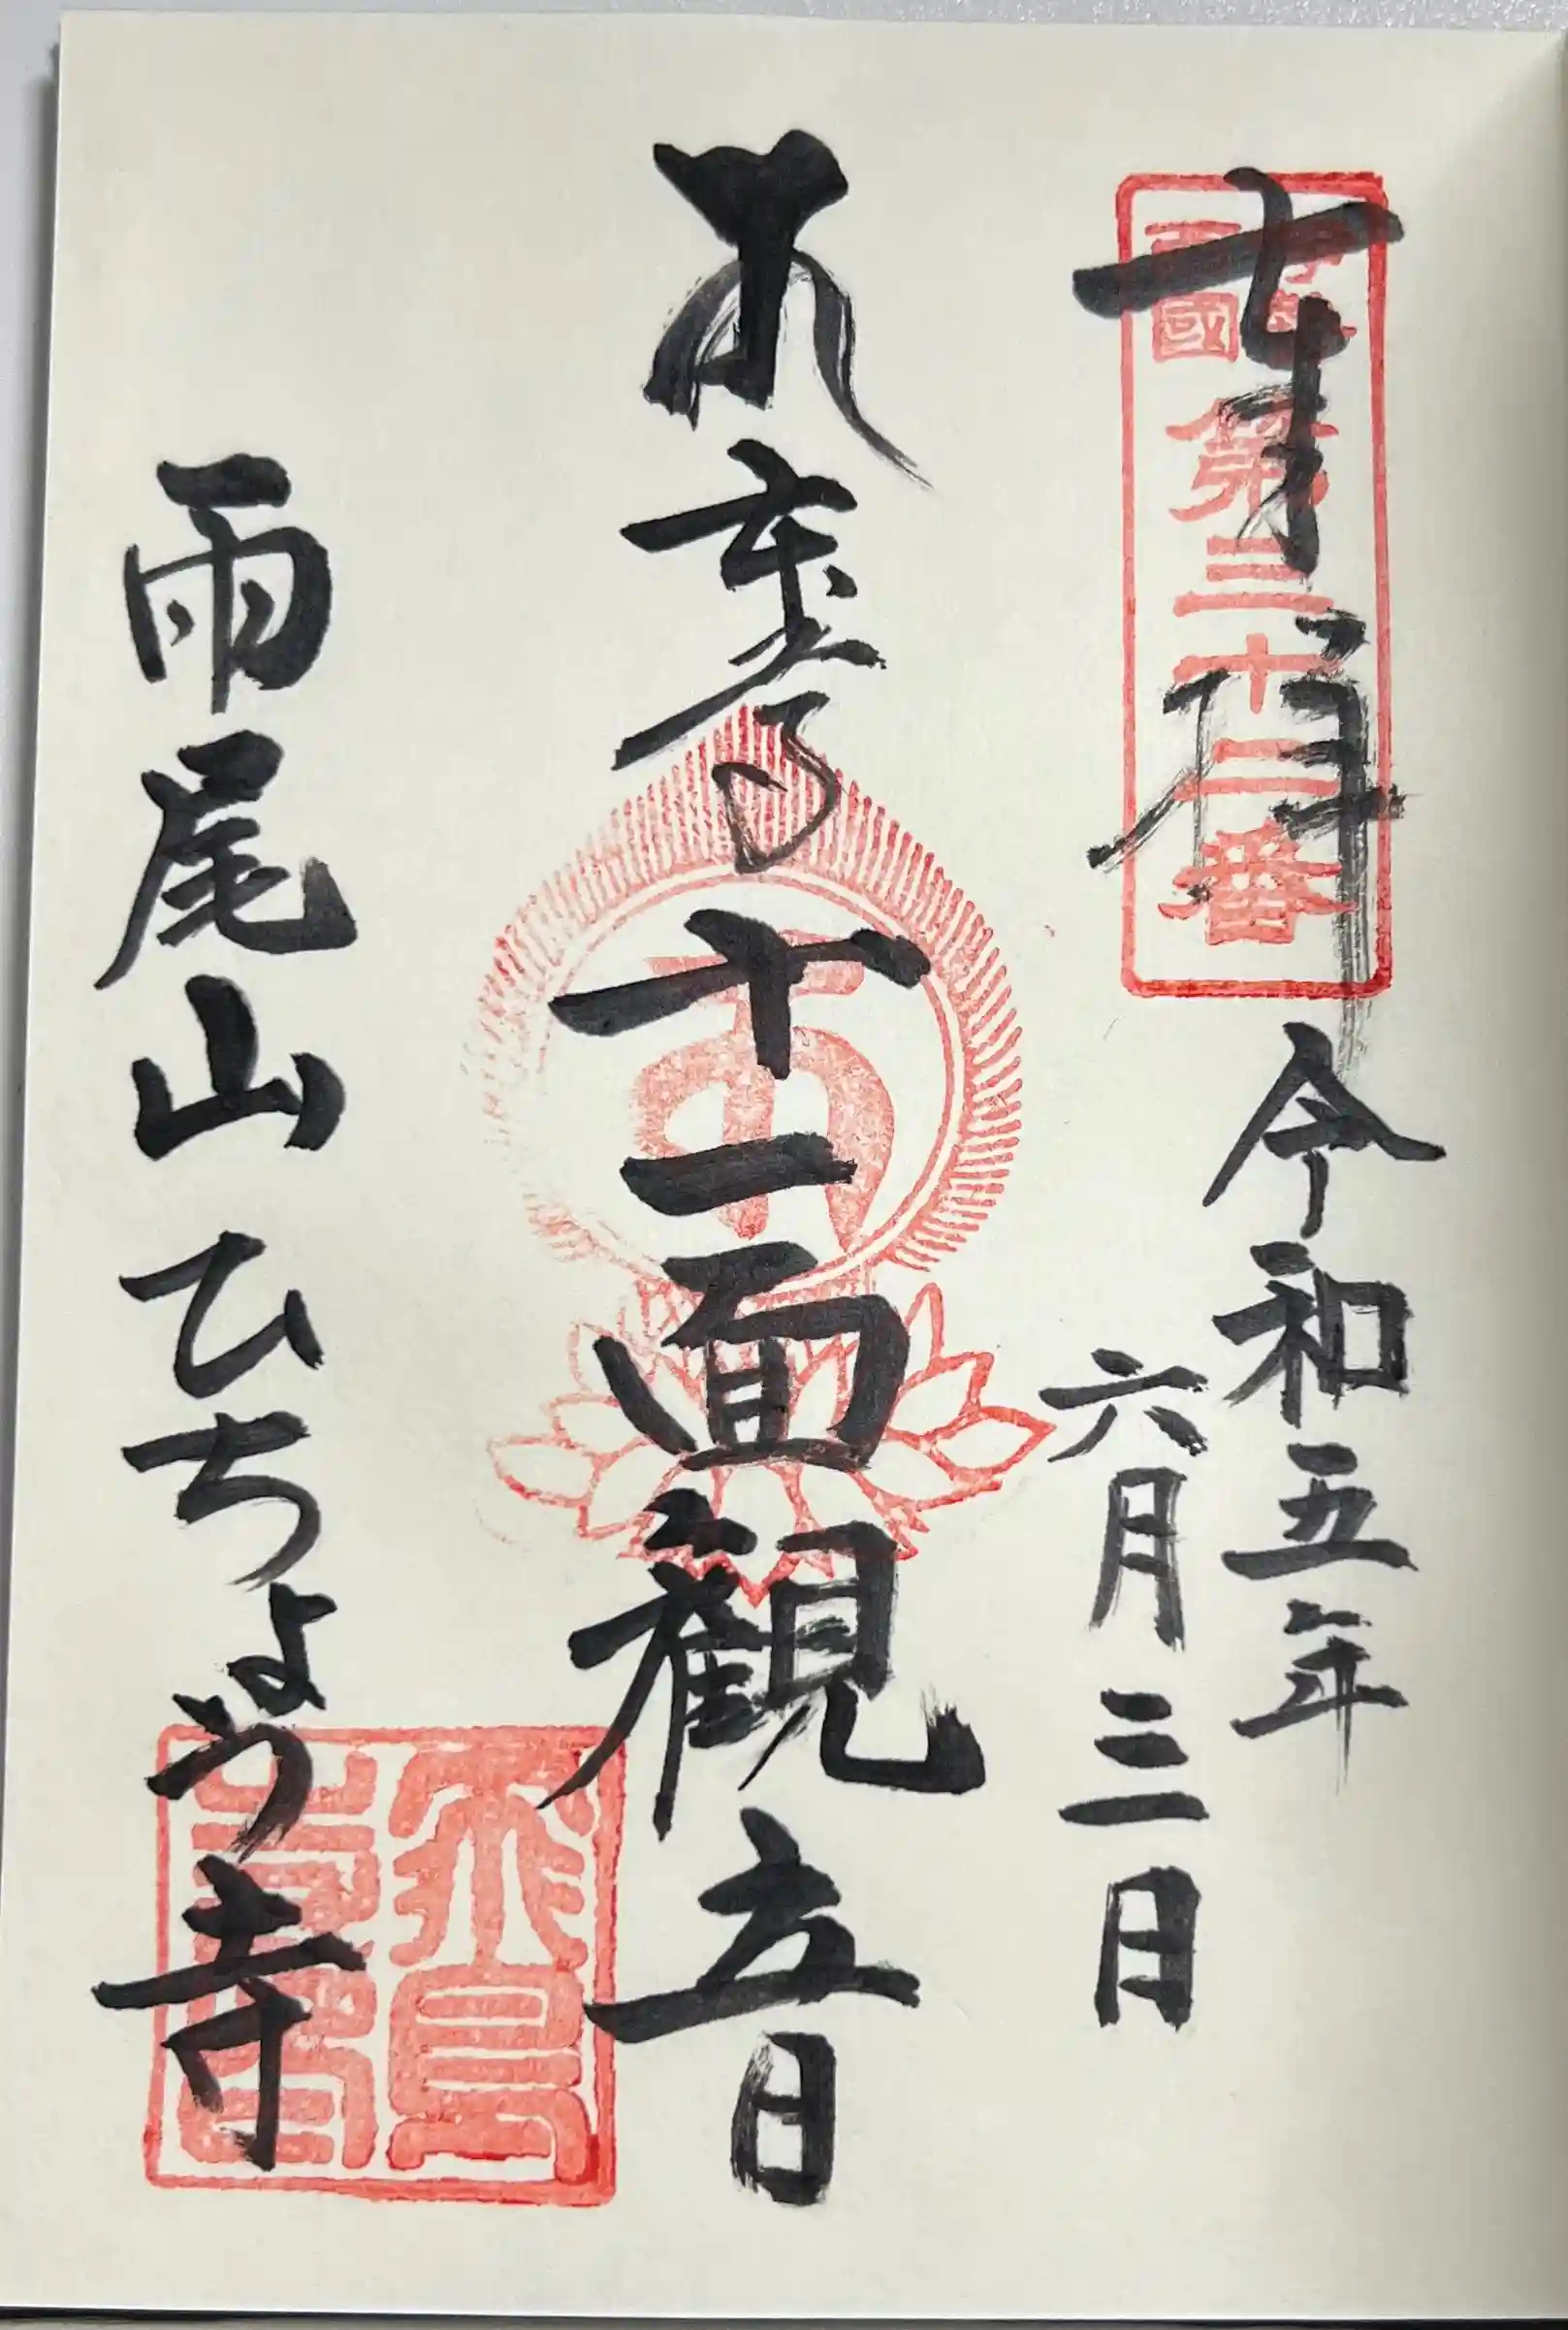 奉拝
第三十二番
令和五年
六月三日
十一面観音
雨尾山ひちょう寺